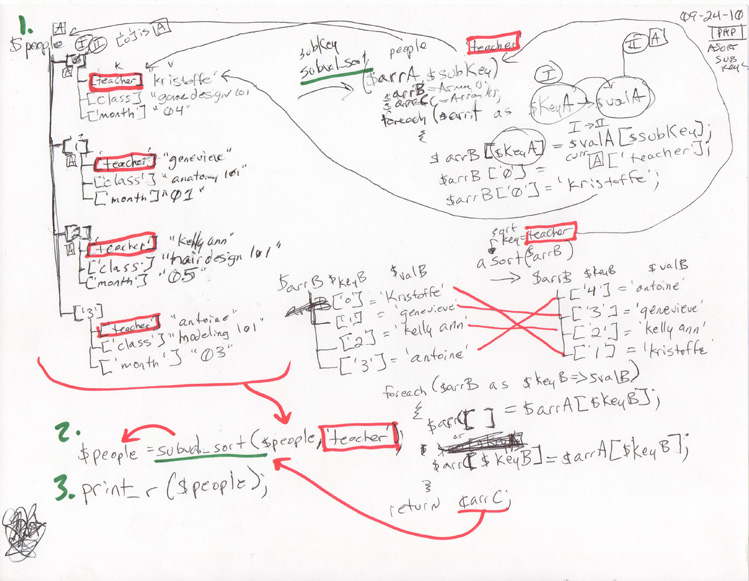 1.
$people
A
I II [0] is A
[0]
A
K V
['teacher'] "kristoffe"
[class] "game design 101
['month'] "04"
['1']
A
['teacher'] "genevieve"
['class'] "anatomy 101"
['month'] "01"
['2']
A
['teacher'] "kelly ann"
['class'] "hair design 101"
['month'] "05"
['3']
['teacher'] "antoine"
['class'] "modeling 101
['month'] "03"
2.
$people = subval_sort($people, 'teacher');
3. print_r($people);
09-24-10
PHP
ASORT
SUB
KEY
subKey
subval_sort
people
teacher
($arrA, $subKey)
$arrB = Array();
$arrC = Array();
foreach ( as
{
I
$keyA → $valA
II A
I → II
$arrB[$keyA] = $valA[$subKey];
curr A ['teacher'];
$arrB['0'] =
$arrB['0'] = 'kristoffe';
sort
key = teacher
asort($arrB)
$arrB $keyB $valB
['0'] = 'Kristoffe'
['1'] = 'genevieve'
['2'] = 'kelly ann'
['3'] = 'antoine'
→ $arrB $keyB $valB
['4'] = 'antoine'
['3'] = 'genevieve'
['2'] = 'kelly ann'
['1'] = 'kristoffe'
foreach ($arrB as $keyB => $valB)
{
$arr[ ] = $arrA[$keyB];
$arr[$keyB] = $arrA[$keyB];
}
return $arrC;